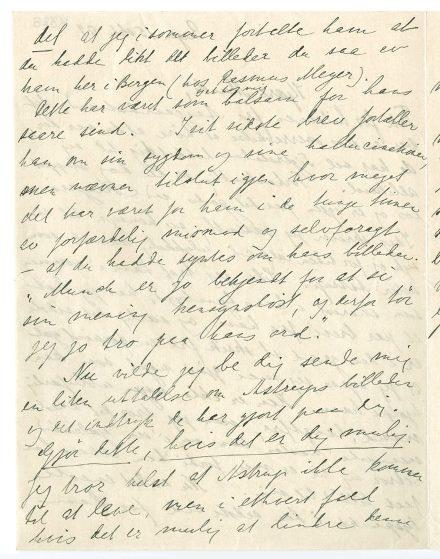 det at jeg i sommer fortalte ham at
du hadde likt det billede du saa av
ham her i Bergen (hos Rasmus Meyer).
Dette har været som balsam for hans
saare sind. I sit sidste brev fortæller
han om sin sygdom og sine hallucinationer,
men nævner tilslut igjen hvor meget
det har været for ham i de tunge timer
av forfærdelig mismod og selvforagt
– at du hadde syntes om hans billeder.
"Munch er jo bekjendt for at si
sin mening hensynsløst, og derfor tør
jeg jo tro paa hans ord."
Nu vilde jeg be dig sende mig
en liten uttalelse om Astrups billeder
og det indtryk de har gjort paa dig.
Gjør dette, hvis det er dig mulig
Jeg tror helst at Astrup ikke kommer
til at leve, men i ethvert fald
hvis det er mulig at lindre denne